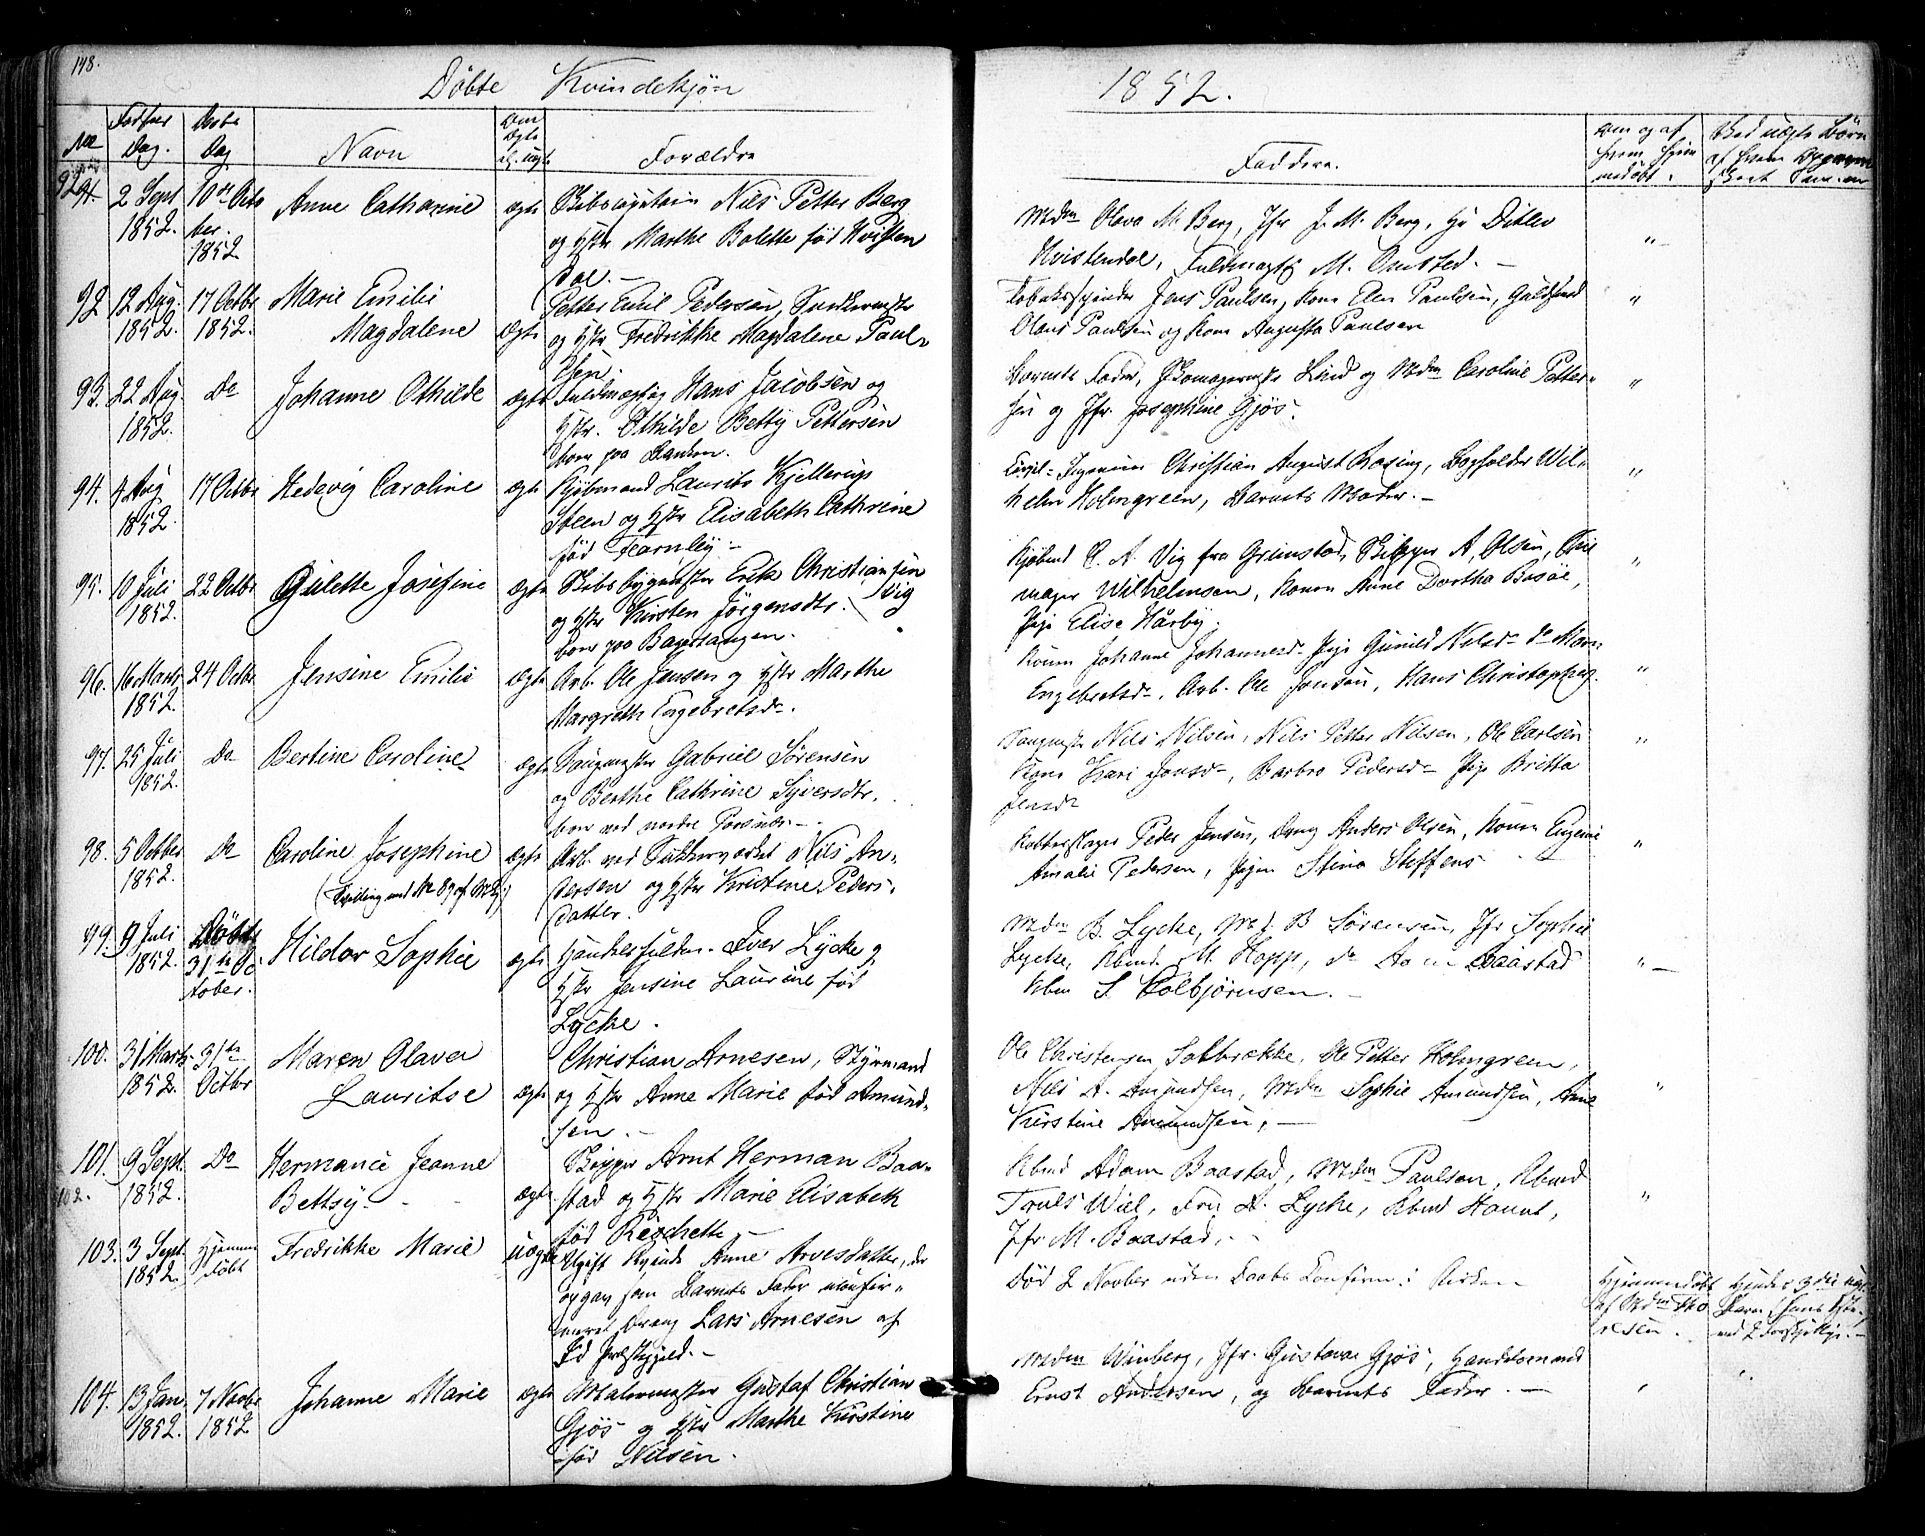 148.
Döbte Kvindekjøn
1852.
No
Fødsels Dag.
Daabs Dag
Navn
Om Ægte el. uægte
Forældre
Faddere.
Om og af hvem hjemmedøbt.
91.
2 Sept 1852.
10de October 1852
Anne Cathrine
ægte
Skibscapitain Nils Petter Berg
og Hstr Marthe Bolette fød Kristen
dal.
Mdm Olava M. Berg, Jfr J. M. Berg, Hr Ditlev
Kristendal, Fuldmægtig M. Omsted.
"
92
12 Aug. 1852.
17 Octbr 1852.
Marie Emilie
Magdalene
ægte
Petter Emil Pedersen,
og Hstr Fredrikke Magdalene Paul-
sen.
Tobaksspinder Jens Paulsen, Kone Elen Paulsen, Guldsmed
Olaus Paulsen og Kone Augusta Paulsen
"
93.
22 Aug 1852.
Do
Johanne Othilde
ægte
Fuldmægtig Hans Jacobsen og
Hstr. Othilde Betty Pettersen
boer paa Banken.
Barnets Fader, Skomagermstr Lind og Mdm Caroline Petter-
sen og Jfr. Josephine Gjös.
"
94.
4 Aug 1852.
17 Octbr
Hedevig Caroline
ægte
Kjøbmand Laurits Kjellerup
Steen og Hstr Elisabeth Cathrine
fød Fearnley.
Civil-Ingeniør Christian August Rosing, Bogholder Wil-
helm Holmgreen, Barnets Moder.
"
95.
10 Juli 1852.
22 Octbr
Gulette Josefine
ægte
Skibsbygmester Erik Christiansen
Vig
og Hstr Kirsten Jörgensdtr.
boer paa Bagertangen.
Kjøbmd C. A. Vig fra Grimstad, Skipper A. Olsen,
mager Wilhelmsen, Konen Anne Dorthea Basöe,
Pige Elise Hårby.
"
96.
16 Marts 1852.
24 Octbr
Jensine Emilie
ægte
Arb. Ole Jensen og Hstr Marthe
Margreth Engebretsdr.
Konen Johanne Johannesdr Pige Gunild Nilsdr do Maren
Engebretsdr, Arb. Ole Jonsen, Hans Christophers.
"
97.
25 Juli 1852.
Do
Bertine Caroline
ægte
Gabriel Sörensen
og Berthe Cathrine Syversdtr.
boer ved nordre
Nils Nilsen, Nils Petter Nilsen, Ole Carlsen
Kone Kari Jonsdr, Barbro Pedersdr Pige Britta
Jensdr
"
98.
5 Octber 1852.
Do
Caroline Josephine
(Tvilling med No 89 af Mkj)
ægte
Arb. ved Sukkerværket Nils An-
dersen og Hstr Kristine Peders-
datter.
Kobberslager Peder Jensen, Dreng Anders Olsen, Konen Eugenie
Amalie Pedersen, Pigen Stina Steffens
"
99.
9 Juli 1852.
Döbt 31te October.
Hildor Sophie
ægte
Handelsfuldm. Iver Lycke og
Hstr Jensine Laurine fød
Lycke.
Mdm B. Lycke, Md. B Sörensen, Jfr Sophie
Lycke, Kbmd. M. Hopp, do Baastad
Kbm S. Kolbjörnsen.
"
100.
31 Marts 1852.
31te Octbr
Maren Olava
Lauritse
ægte
Christian Arnesen, Styrmand
og Hstr Anne Marie fød Amund-
sen.
Ole Christensen Solbrække, Ole Petter Holmgreen,
Nils A. Amundsen, Mdm Sophie Amundsen, Anne
Kirstine Amundsen,
"
101.
102.
9 Sept. 1852.
Do
Hermance Jeanne
Bettsy
ægte
Skipper Arnt Herman Baa-
stad og Hstr Marie Elisabeth
fød Reochette
Kbmd Adam Baastad, Mdm Paulson, Kbmd
Truls Wiel, Fru A. Lycke, Kbmd Hount,
Jfr. M. Baastad.
"
103.
3 Sept. 1852.
Hjemmedøbt
Fredrikke Marie
uægte
Ugift Kvinde Anne Arvesdatter, der
opgav som Barnets Fader
Dreng Lars Arnesen af
Id Præstegjeld.
Död 2 Novber uden Daabs Confirm. i Kirken
Hjemmedöbt
af Mdm Tho
resen.
104.
13 Jan. 1852.
7 Novbr 1852
Johanne Marie
ægte
Malermester Gustaf Christian
Gjös og Hstr Marthe Kirstine
fød Nilsen.
Mdm Winberg, Jfr. Gustava Gjös, Handelsmand
Ernst Andersen, og Barnets Fader.
"